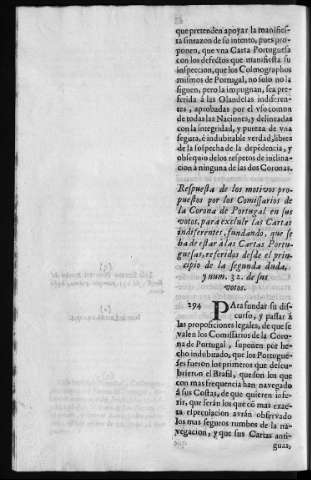 que pretenden apoyar la manifies-
ta sinrazon de su intento, pues pro-
ponen, que vna Carta Portuguesa
con los defectos que manifiesta su
inspeccion, que los Cosmographos
mismos de Portugal, no solo no la
siguen, pero la impugnan, sea pre-
ferida à las Olandesas indiferen-
tes, aprobadas por el vso comun
de todas las Naciones, y delineadas
con la integridad, y pureza de vna
segura, è indubitable verdad, libres
de la sospecha de la depēdencia, y
obsequio de los respetos de inclina-
cion à ninguna de las dos Coronas.
Respuesta de los motivos pro-
puestos por los Comissarios de
la Corona de Portugal en sus
votos, para excluir las Cartas
indiferentes, fundando, que se
ha de estàr à las Cartas Portu-
guesas, referidos desde el prin-
cipio de la segunda duda,
y num. 32. de sus
votos.
294 PAra fundar su dis-
curso, y passar à
las proposiciones legales, de que se
valen los Comissarios de la Coro-
na de Portugal, suponen por he-
cho indubitado, que los Portugue-
ses fueron los primeros que descu-
brieron el Brasil, que son los que
con mas frequencia han navegado
à sus Costas, de que quieren infe-
rir, que seràn los que cō mas exac-
ta especulacion avràn observado
los mas seguros rumbos de la na-
vegacion, y que sus Cartas anti-
guas,